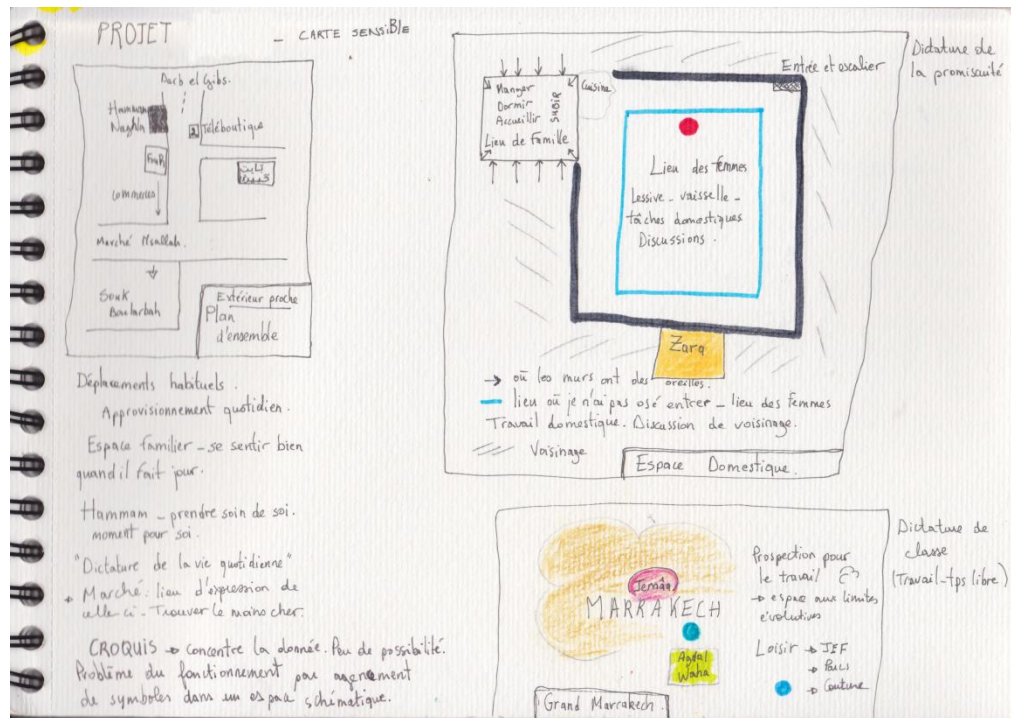 PROJET _ CARTE SENSIBLE
Darb el Gibs.
Hammam
Téléboutique
FOUR
commerces
Marché M'sallah.
Souk
Boularbah
Extérieur proche
Plan
d'ensemble
Déplacements habituels.
Approvisionnement quotidien.
Espace familier - se sentir bien
quand il fait jour.
Hammam - prendre soin de soi.
moment pour soi.
"Dictature de la vie quotidienne"
Marché: lieu d'expression de
celle ci - Trouver le moins cher.
CROQUIS → concentre la donnée. Peu de possibilité.
Problème du fonctionnement par agencement
de symboles dans un espace schématique.
Dictature de
la promiscuité
Entrée et escalier
Cuisine
Manger
Dormir
Accueillir
SUBIR
Lieu de Famille
Lieu des femmes
Lessive - vaisselle -
tâches domestiques
Discussions.
Zara
→ où les murs ont des oreilles.
— lieu où je n'ai pas osé entrer - lieu des femmes
Travail domestique. Discussion de voisinage.
Voisinage
Espace Domestique.
Dictature de
classe
(Travail - tps libre)
Jemâa
MARRAKECH
Agdal
Waha
Grand Marrakech.
Prospection pour
le travail
→ espace aux limites
évolutives
Loisir → JEF
→
→ Couture